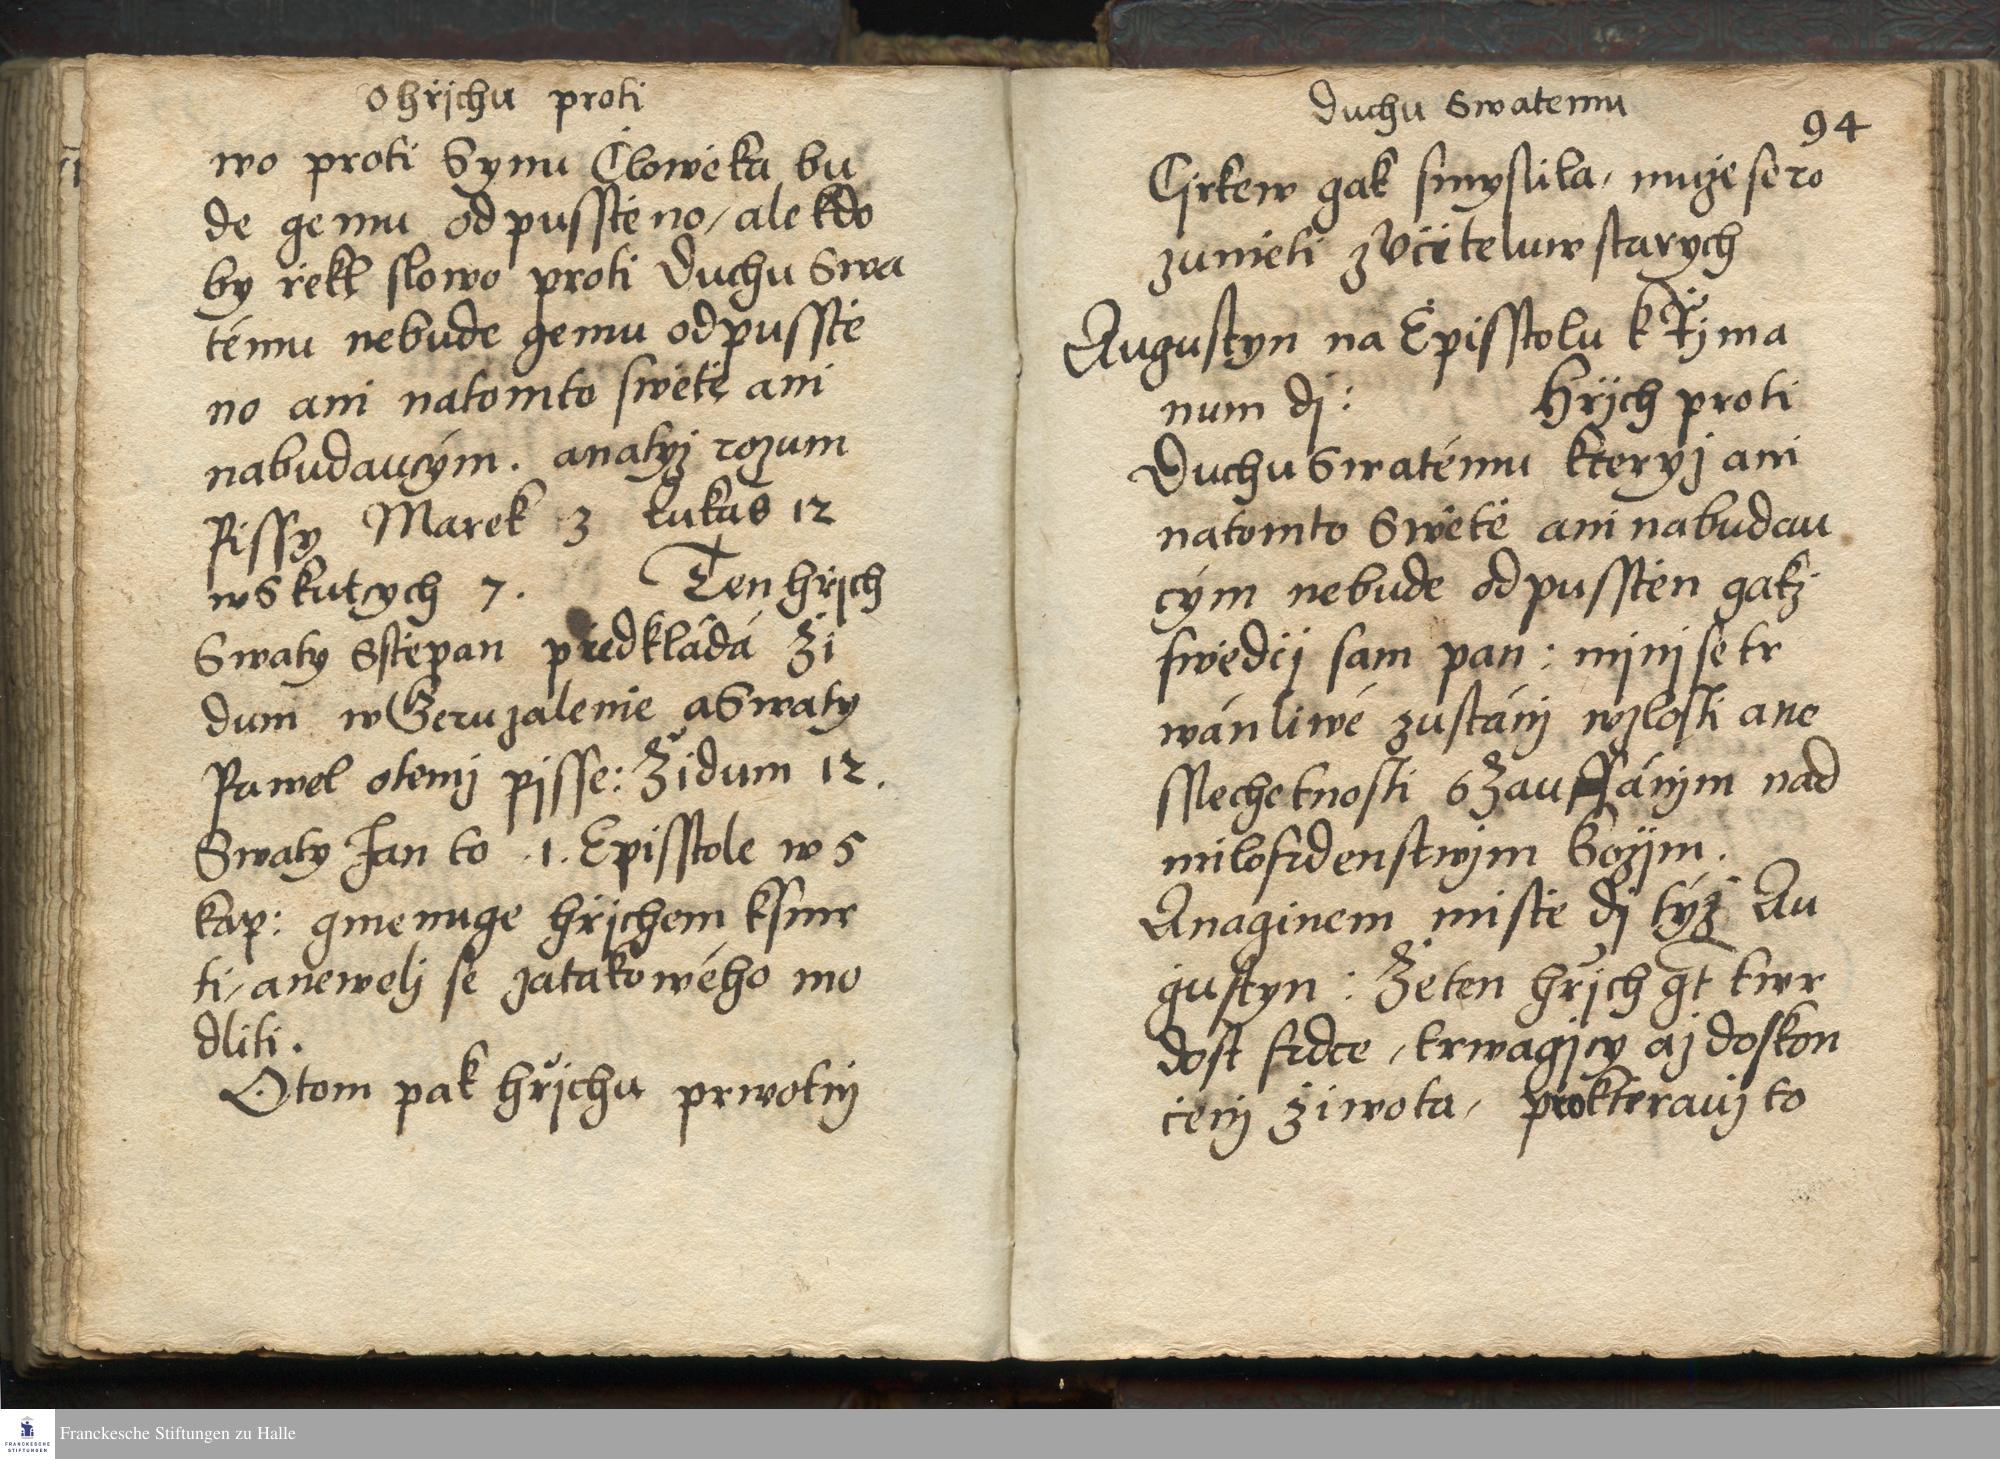 O hřjchu proti
wo proti Synu Člowěka bu
de gemu odpusstěno, ale kdo
by řekl slowo proti Duchu Swa
tému nebude gemu odpusstě
no ani natomto swětě ani
nabudaucým. anatyž rozum
Pissy Marek 3 Lukas 12
w Skutcych 7. Ten hřjch
Swaty Sstěpan předkládá Ži
dum w Geruzalemě a Swaty
Pawel otemž pjsse: Židum 12.
Swaty Jan to .1. Episstole w 5
kap: gmenuge hřjchem k smr
ti, anewelj se zatakowého mo
dliti.
Otom pak hřjchu prwotnj
Duchu Swatemu
94
Cjrkew gak smyslila, muže se ro
zuměti z Včiteluw starych
Augustyn na Episstolu k Řjma
num dj: Hřjch proti
Duchu Swatému kteryž ani
natomto Swětě ani nabudau
cým nebude odpusstěn gakž
swědčj sam pan: mjnj se tr
wánliwé zustánj wzlosti a ne
sslechetnosti s Zauffánjm nad
milosrdenstwjm Božjm.
Anaginem mistě dj týž Au
gustyn: Že ten hřjch gt twr
dost srdce, trwagjcy až do skon
čenj žiwota, prokterauž to
Franckesche Stiftungen zu Halle